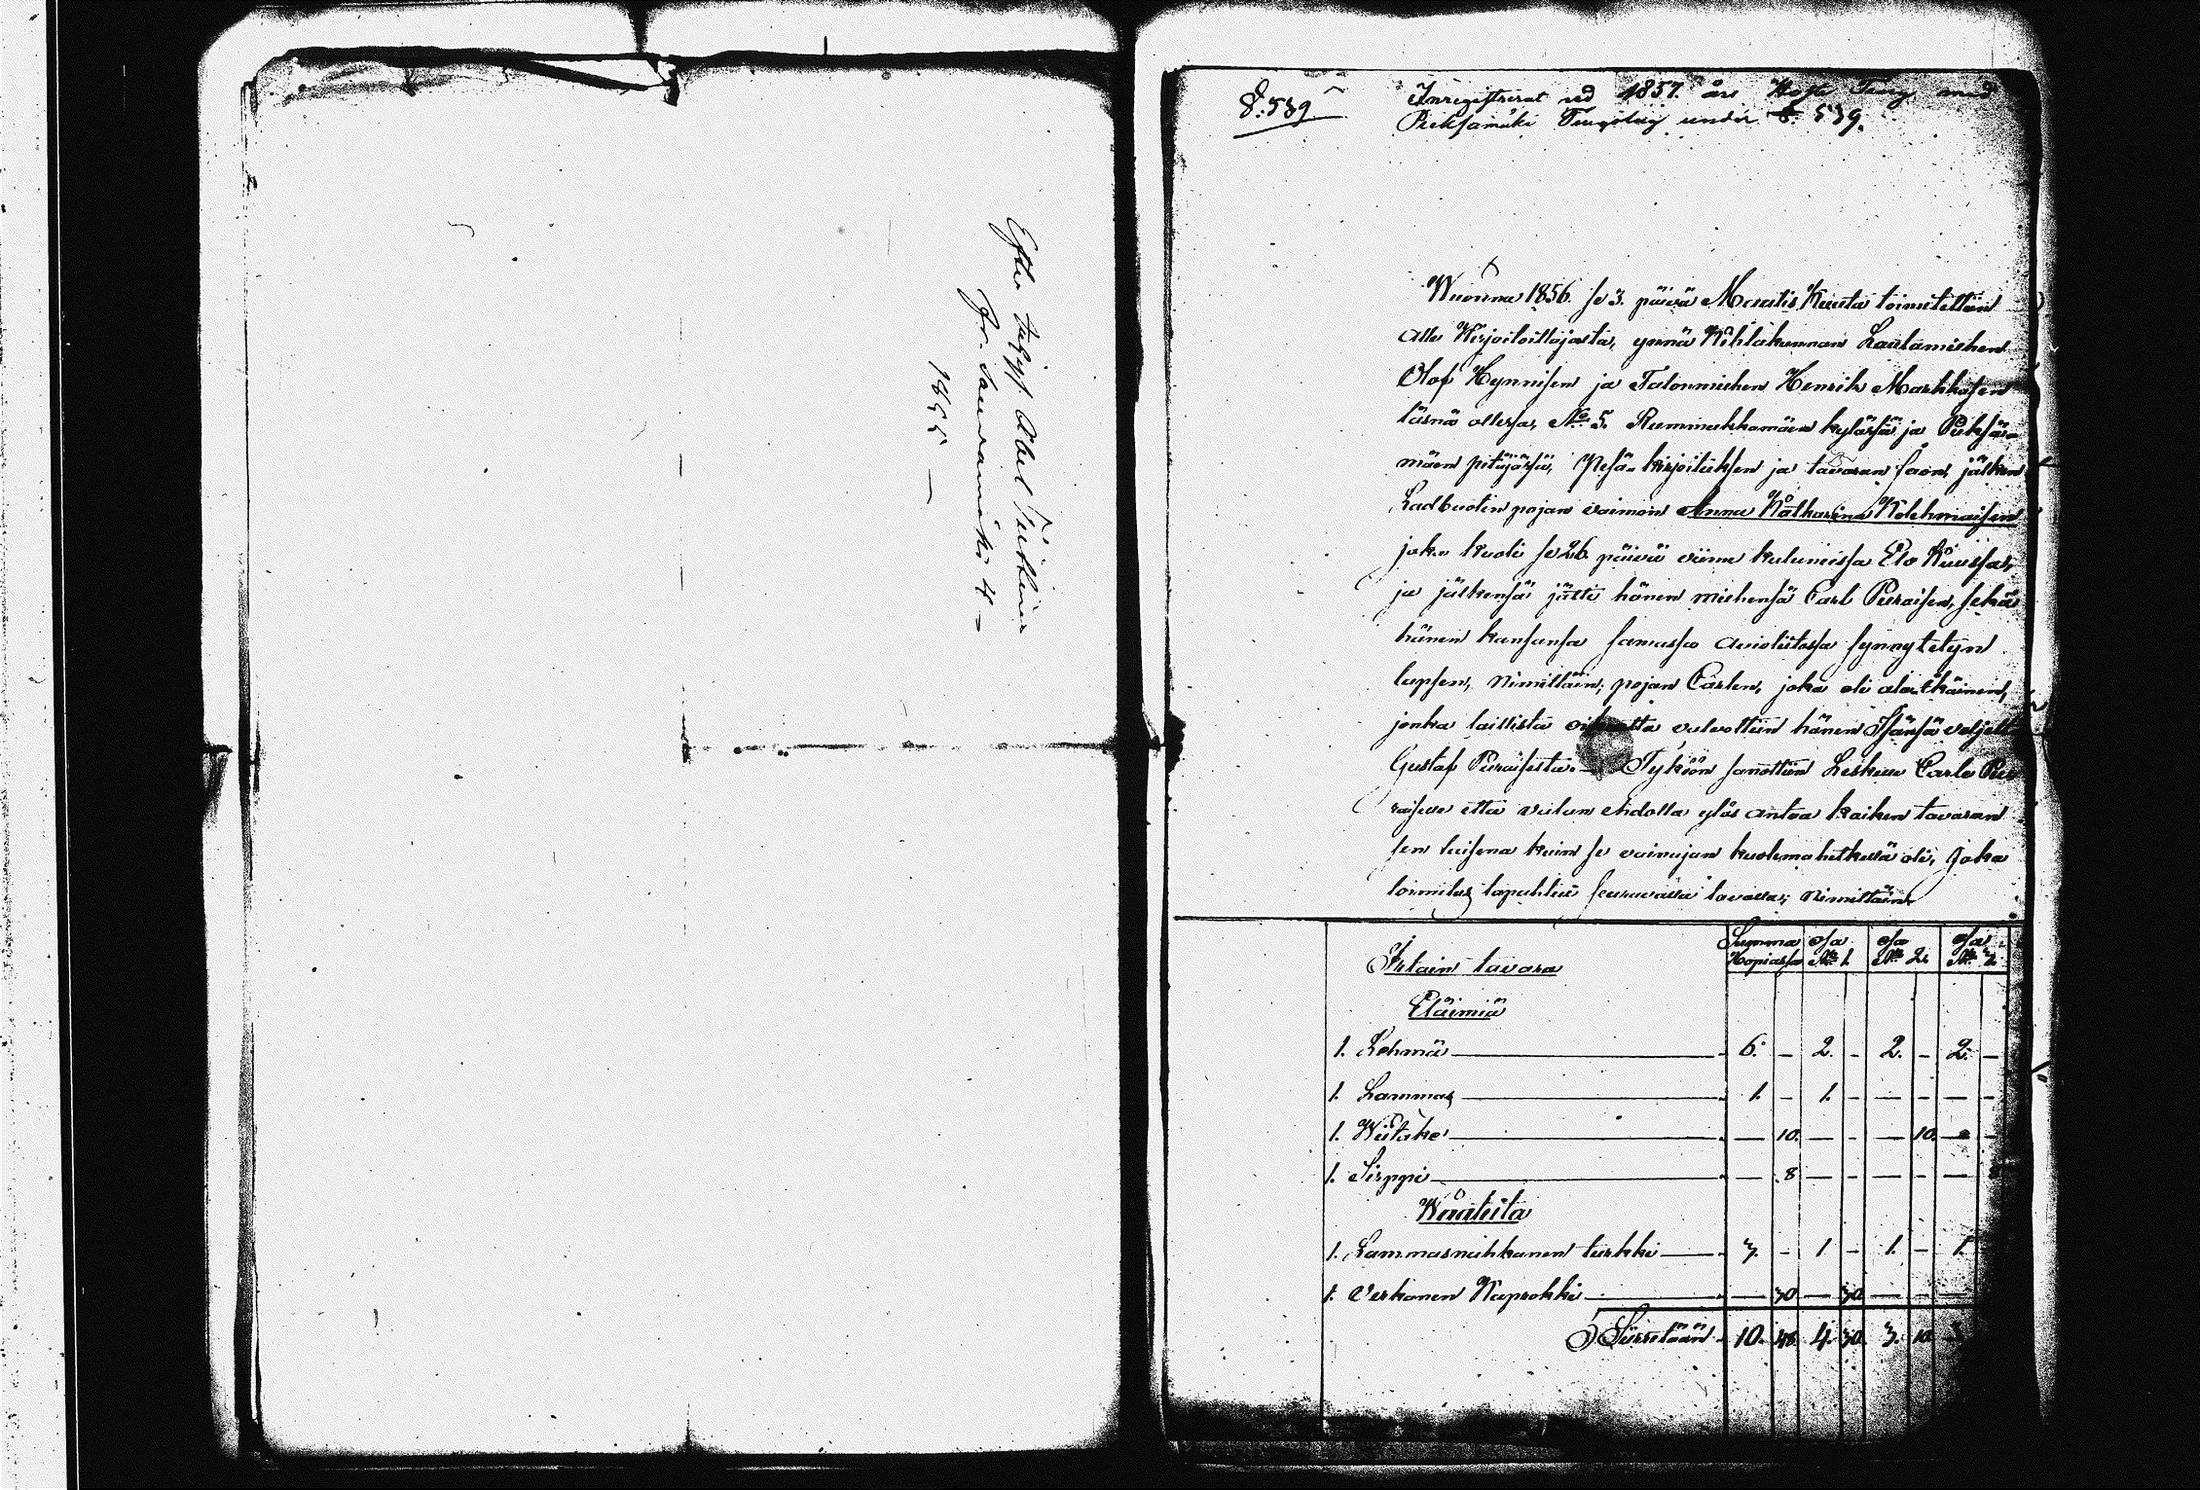 Efter
Abel
1855
§: 539.
Inregistrerat vid 1857. års Höste Ting med
Pieksamäki Tingslag under §. 539.
Wuonna 1856. se 3. päivä Maalis Kuuta toimitettin
alla Kirjoitoittajasta, ynnä Kihlakunnan Lautamiehen
Olof Hynnisen ja Talonmiehen Henrik Markkasen
läsnä ollessa, No 5. kylässä ja Pieksä-
mäen pitäjässä, Pesän kirjoituksen ja tavaran jaon, jälken
pojan vaimon Anna Katharina Kolehmaisen
joka kuoli se 26. päivä viime kuluneissa Elo Kuussa,
ja jälkensä jätti hänen miehensä Carl Puraisen, sekä
hänen kansansa samassa avioliitossa synnytetyn
lapsen, nimittäin, pojan Carlen, joka oli ala-ikäinen,
jonka laillista oikeutta valvottiin hänen Isänsä veljeltä
Gustaf Puraisesta. — Tyköön sanottiin Leskein Carle Pu-
raisen että valan ehdolla ylös antaa kaiken tavaran
sen laisena kuin se vainajan kuolema hetkessä oli, Joka
toimitus tapahtui seuravassa tavassa; nimittäin
Irtain tavara Summa Kopiassa Osa No 1. Osa No 2. Osa No 3.
Eläimiä
1. Lehmä — 6. – 2. – 2. – 2. –
1. Lammas — 1. – 1. – – – – –
1. Wiitake — – 10. – – – 10. – –
1. Sirppi — – 8 – – – – – 8
Waateita
1. Lammasnahkanen turkki — 3. – 1 – 1. – 1.
1. Verkanen Kaprokki — – 30 – 30 – – –
Siirretään 10. 48. 4. 30. 3. 10. 3